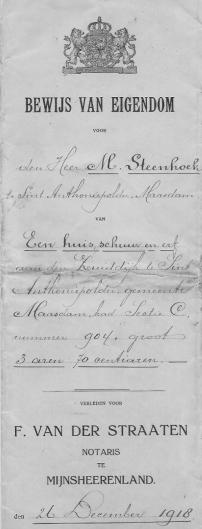 BEWIJS VAN EIGENDOM
VOOR
den Heer M. Steenhoek
te Sint Anthoniepolder, Maasdam
VAN
Een huis, schuur en erf
aan den Keizersdijk te Sint
Anthoniepolder, gemeente
Maasdam, kad. Sectie C,
nummer 904, groot
3 aren 70 centiaren.
VERLEDEN VOOR
F. VAN DER STRAATEN
NOTARIS
TE
MIJNSHEERENLAND.
den 26 December 1918